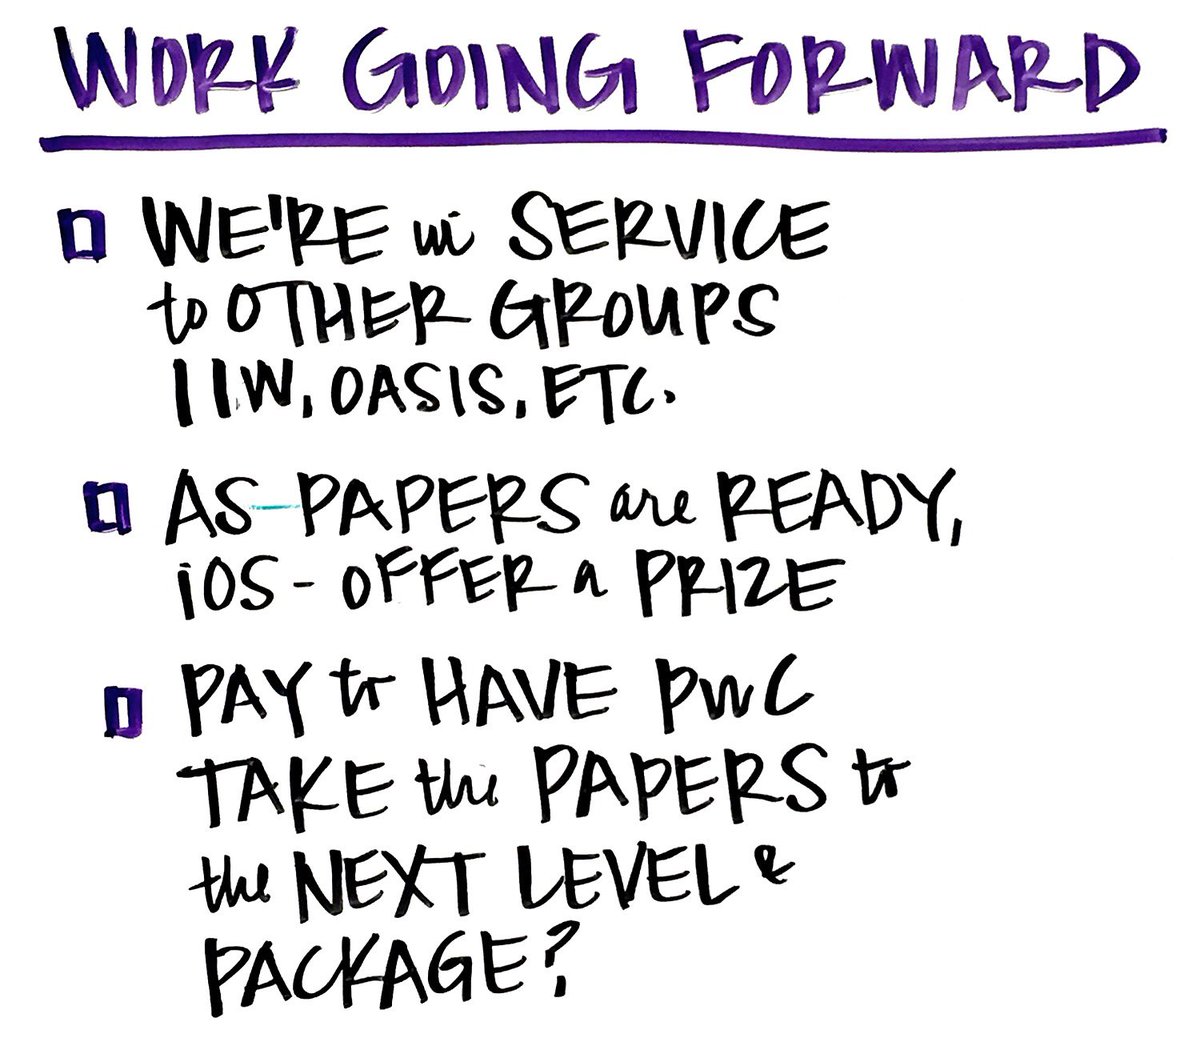 WORK GOING FORWARD
WE'RE in SERVICE
to OTHER GROUPS
IIW, OASIS, ETC.
AS PAPERS are READY,
iOS - OFFER a PRIZE
PAY to HAVE PWC
TAKE the PAPERS to
the NEXT LEVEL &
PACKAGE?